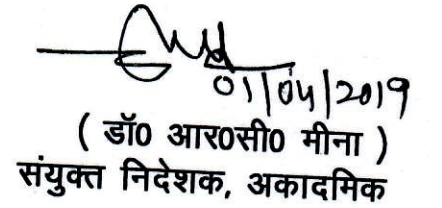 01/04/2019
( डॉ0 आर0सी0 मीना )
संयुक्त निदेशक, अकादमिक